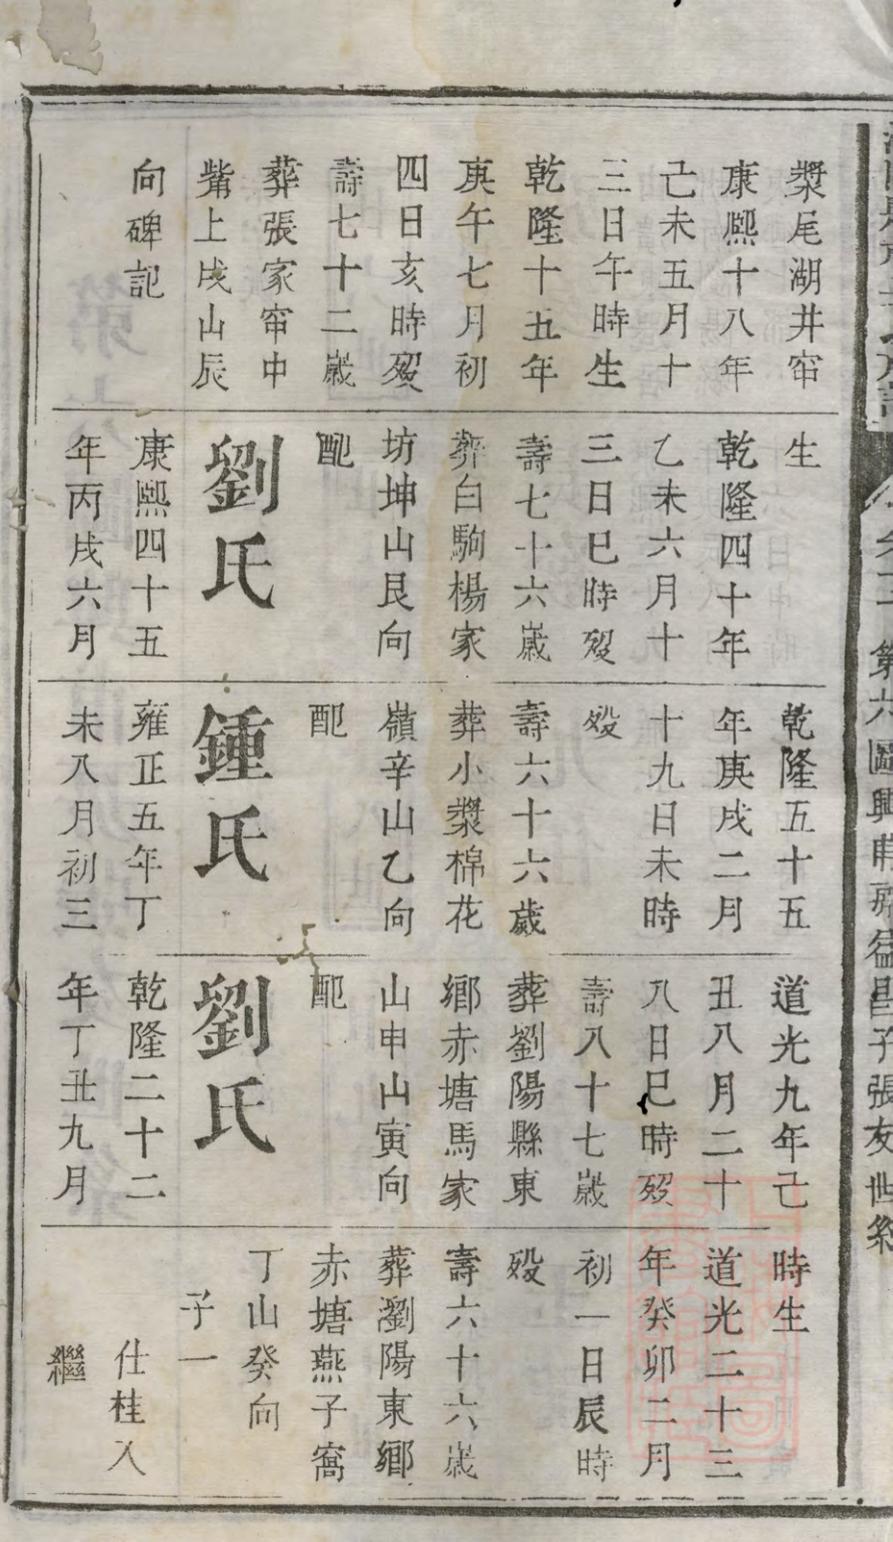 漿尾湖井窋
康熙十八年
己未五月十
三日午時生
乾隆十五年
庚午七月初
四日亥時歿
壽七十二歲
葬張家窋中
觜上戌山辰
向碑記
生
乾隆四十年
乙未六月十
三日巳時歿
壽七十六歲
葬白駒楊家
坊坤山艮向
配
劉氏
康熙四十五
年丙戌六月
乾隆五十五
年庚戌二月
十九日未時
歿
壽六十六歲
葬小漿棉花
嶺辛山乙向
配
鍾氏
雍正五年丁
未八月初三
道光九年己
丑八月二十
八日巳時歿
壽八十七歲
葬劉陽縣東
鄉赤塘馬家
山申山寅向
配
劉氏
乾隆二十二
年丁丑九月
時生
道光二十三
年癸卯二月
初一日辰時
歿
壽六十六歲
葬瀏陽東鄉
赤塘燕子窩
丁山癸向
子一
仕桂入
繼